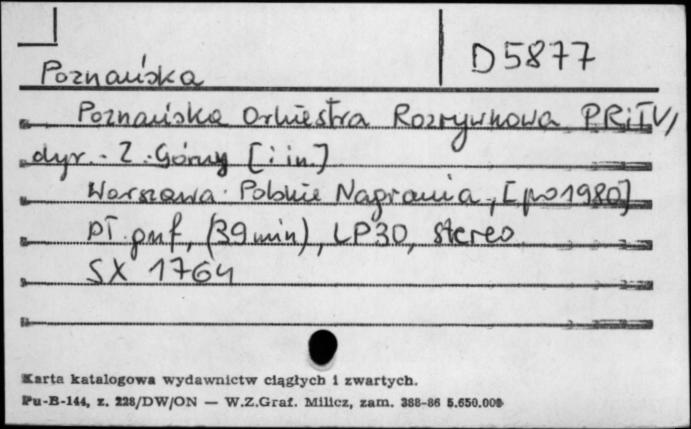 D 5877
Poznańska
Poznańska Orkiestra Rozrywkowa PRiTV /
dyr. Z. Górny [i in.]
Warszawa : Polskie Nagrania, [po 1980]
pł. gmf, (39 min), LP30, stereo
SX 1764
Karta katalogowa wydawnictw ciągłych i zwartych.
Pu-B-144, z. 228/DW/ON — W.Z.Graf. Milicz, zam. 388-86 5.650.000